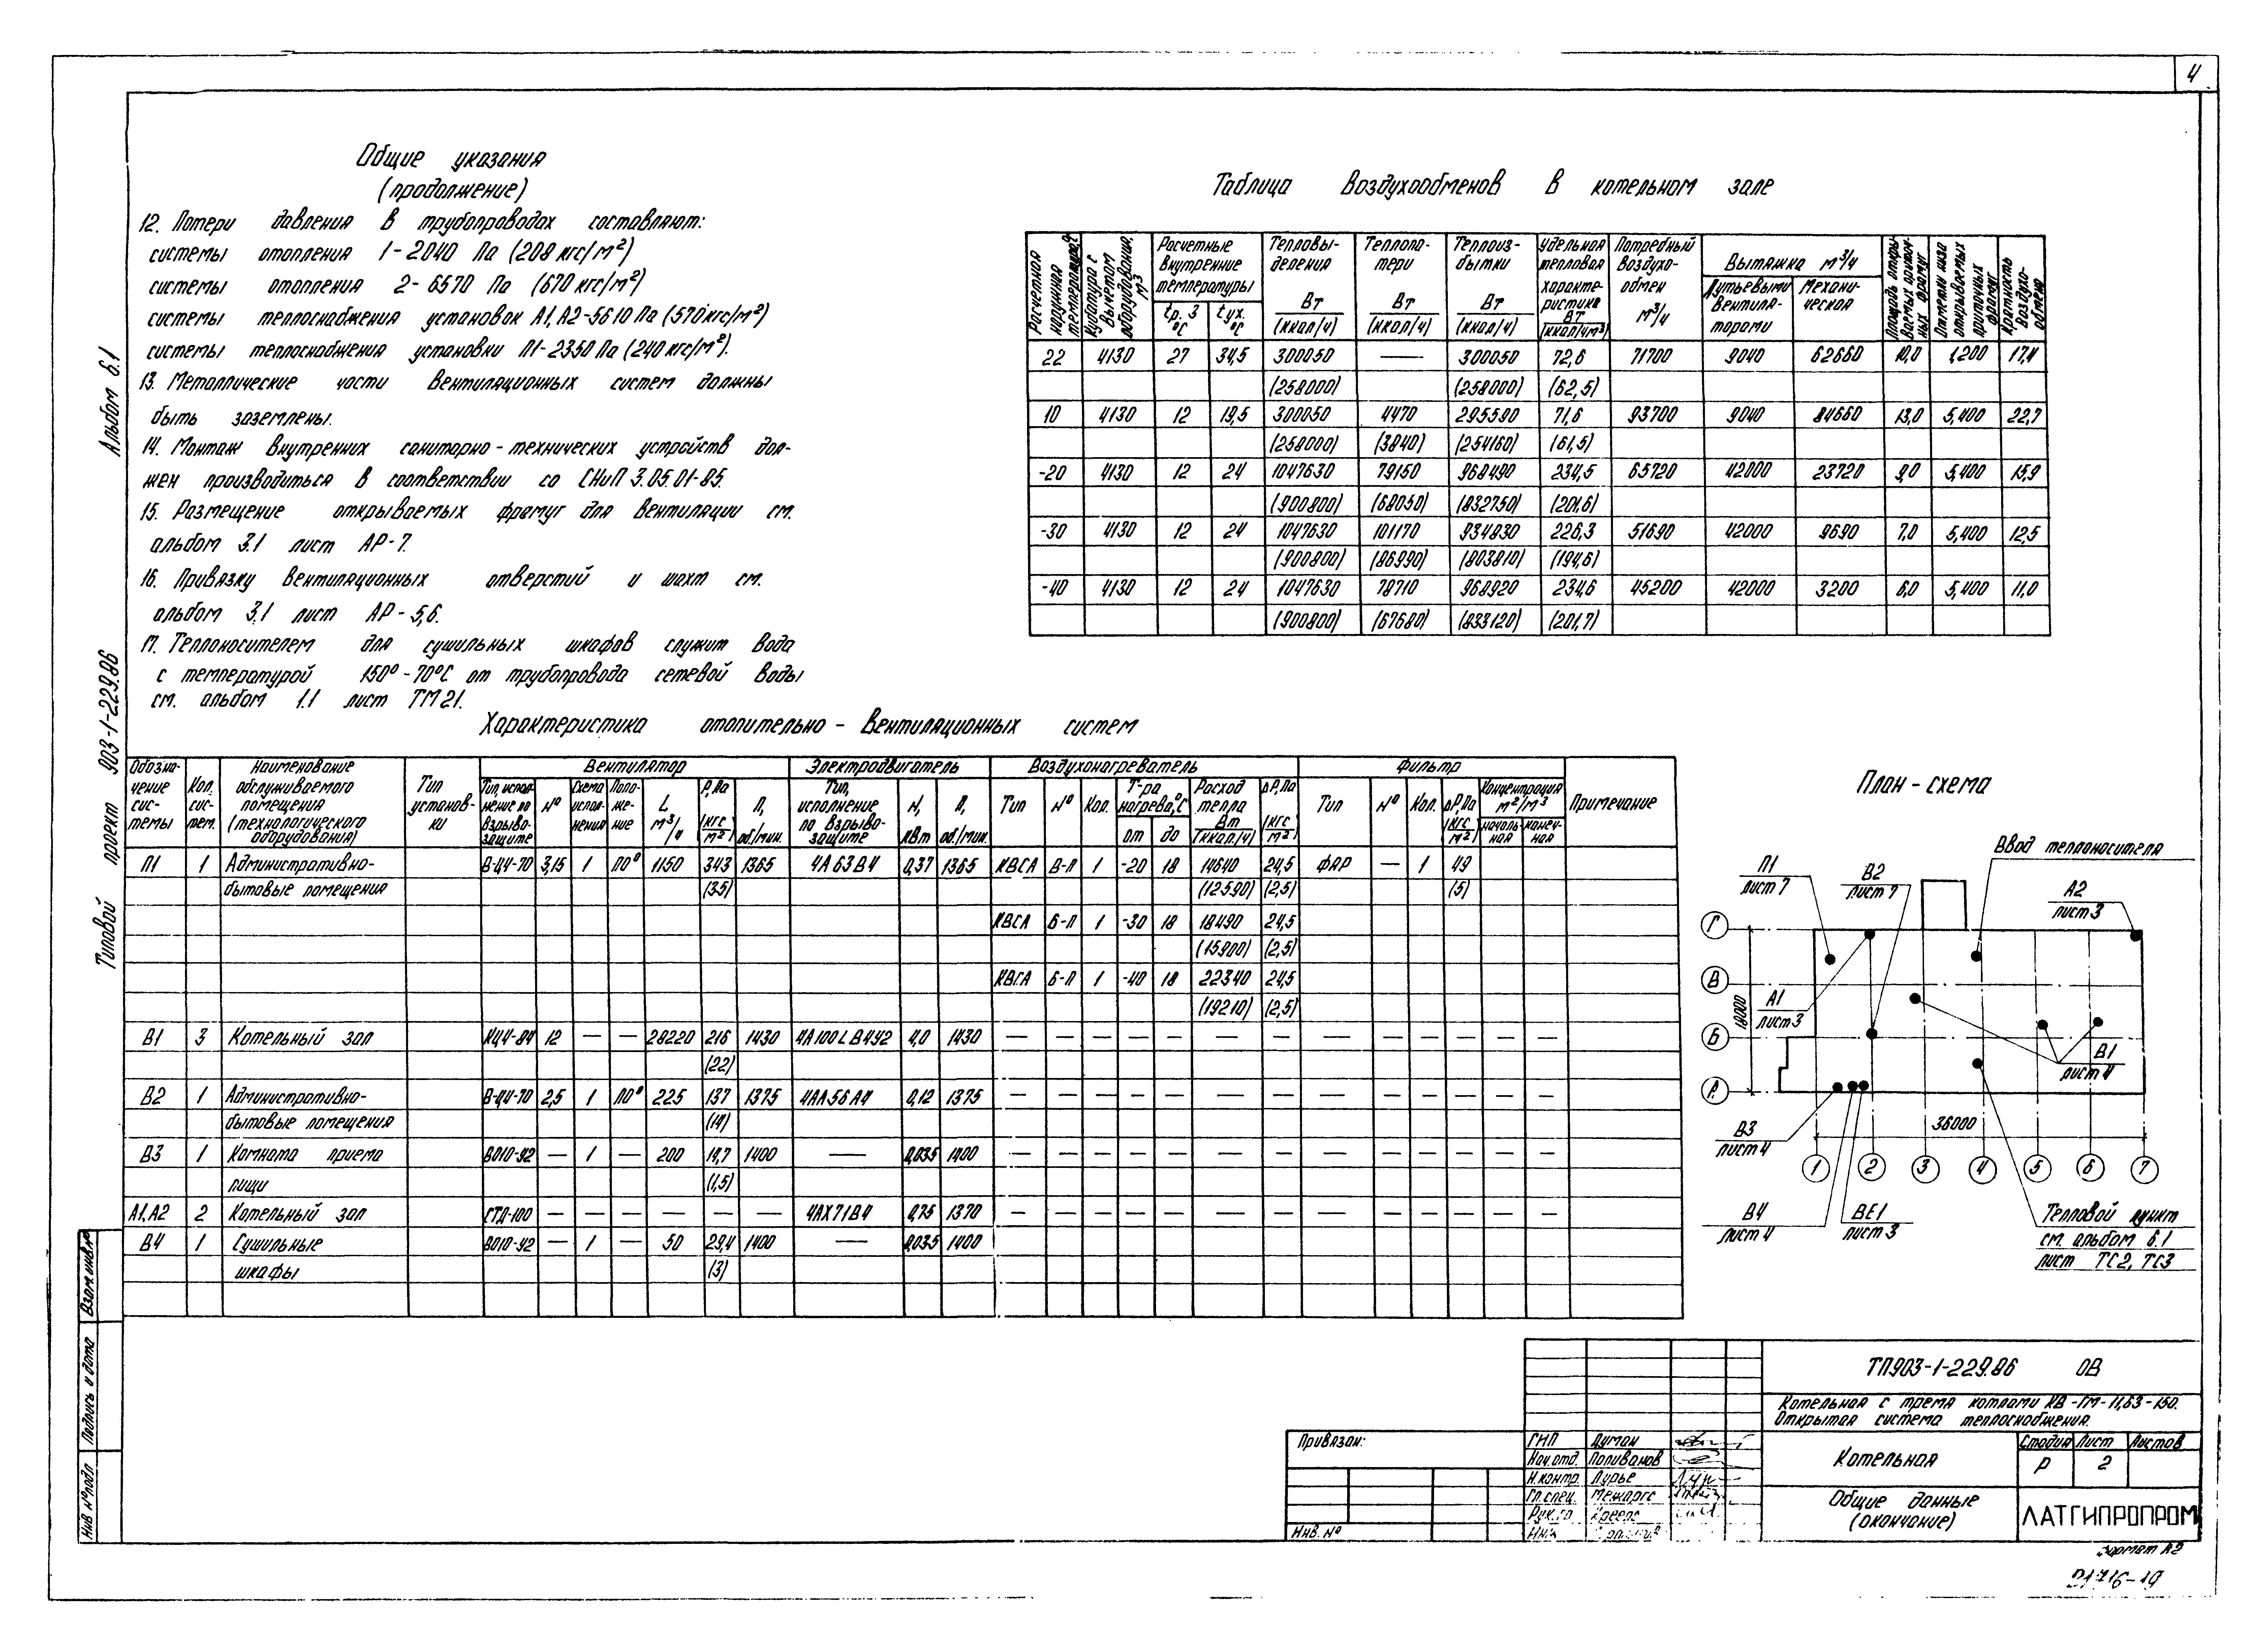 4
Общие указания
(продолжение)
12. Потери давления в трубопроводах составляют:
системы отопления 1-2040 Па (208 кгс/м²)
системы отопления 2-6570 Па (670 кгс/м²)
системы теплоснабжения установок А1, А2-5610 Па (570 кгс/м²)
системы теплоснабжения установки П1-2350 Па (240 кгс/м²).
13. Металлические части вентиляционных систем должны
быть заземлены.
14. Монтаж внутренних санитарно-технических устройств дол-
жен производиться в соответствии со СНиП 3.05.01-85.
15. Размещение открываемых фрамуг для вентиляции см.
альбом 3.1 лист АР-7.
16. Привязку вентиляционных отверстий и шахт см.
альбом 3.1 лист АР-5,6.
17. Теплоносителем для сушильных шкафов служит вода
с температурой 150°-70°С от трубопровода сетевой воды
см. альбом 1.1 лист ТМ21.
Таблица воздухообменов в котельном зале
Расчетная наружная температура,°С | Кубатура с вычетом оборудования, м³ | Расчетные внутренние температуры | Тепловы-деления | Теплопо-тери | Теплоиз-бытки | Удельная тепловая характе-ристика | Потребный воздухо-обмен | Вытяжка м³/ч | Площадь откры-ваемых приточ-ных фрамуг | Отметки низа открываемых приточных фрамуг | Кратность воздухо-обмена
tр.з °С | tух. °С | Вт (ккал/ч) | Вт (ккал/ч) | Вт (ккал/ч) | Вт (ккал/чм³) | м³/ч | Дутьевыми вентиля-торами | Механи-ческая
22 | 4130 | 27 | 34,5 | 300050 | — | 300050 | 72,6 | 71700 | 9040 | 62660 | 10,0 | 1,200 | 17,4
(258000) | (258000) | (62,5)
10 | 4130 | 12 | 19,5 | 300050 | 4470 | 295580 | 71,6 | 93700 | 9040 | 84660 | 13,0 | 5,400 | 22,7
(258000) | (3840) | (254160) | (61,5)
-20 | 4130 | 12 | 24 | 1047630 | 79150 | 968490 | 234,5 | 65720 | 42000 | 23720 | 9,0 | 5,400 | 15,9
(900800) | (68050) | (832750) | (201,6)
-30 | 4130 | 12 | 24 | 1047630 | 101170 | 934830 | 226,3 | 51690 | 42000 | 9690 | 7,0 | 5,400 | 12,5
(900800) | (86990) | (803810) | (194,6)
-40 | 4130 | 12 | 24 | 1047630 | 78710 | 968920 | 234,6 | 45200 | 42000 | 3200 | 6,0 | 5,400 | 11,0
(900800) | (67680) | (833120) | (201,7)
Характеристика отопительно-вентиляционных систем
Обозна-чение сис-темы | Кол. сис-тем. | Наименование обслуживаемого помещения (технологического оборудования) | Тип установ-ки | Вентилятор | Электродвигатель | Воздухонагреватель | Фильтр | Примечание
Тип, испол-нение по взрыво-защите | № | Схема испол-нения | Поло-же-ние | L м³/ч | Р, Па (кгс/м²) | П, об./мин. | Тип, исполнение по взрыво-защите | N, кВт | П, об./мин. | Тип | № | Кол. | Т-ра нагрева,°С от до | Расход тепла Вт (ккал/ч) | ΔР, Па (кгс/м²) | Тип | № | Кол. | ΔР, Па (кгс/м²) | Концентрация м²/м³ началь-ная конеч-ная
П1 | 1 | Административно- | В-Ц4-70 | 3,15 | 1 | ПО° | 1150 | 343 | 1365 | 4А63В4 | 0,37 | 1365 | КВСА | В-П | 1 | -20 | 18 | 14640 | 24,5 | ФЯР | — | 1 | 49
бытовые помещения | (35) | (12590) | (2,5) | (5)
КВСА | Б-П | 1 | -30 | 18 | 18490 | 24,5
(15900) | (2,5)
КВСА | Б-П | 1 | -40 | 18 | 22340 | 24,5
(19210) | (2,5)
В1 | 3 | Котельный зал | КЦ4-84 | 12 | — | — | 28220 | 216 | 1430 | 4А100LВ4У2 | 4,0 | 1430 | — | — | — | — | — | — | — | — | — | — | — | — | —
(22)
В2 | 1 | Административно- | В-Ц4-70 | 2,5 | 1 | ПО° | 225 | 137 | 1375 | 4АА56А4 | 0,12 | 1375 | — | — | — | — | — | — | — | — | — | — | — | — | —
бытовые помещения | (14)
В3 | 1 | Комната приема | ВО10-У2 | — | 1 | — | 200 | 14,7 | 1400 | — | 0,035 | 1400 | — | — | — | — | — | — | — | — | — | — | — | — | —
пищи | (1,5)
А1,А2 | 2 | Котельный зал | СТД-100 | — | — | — | — | — | — | 4АХ71В4 | 0,75 | 1370 | — | — | — | — | — | — | — | — | — | — | — | — | —
В4 | 1 | Сушильные | ВО10-У2 | — | 1 | — | 50 | 29,4 | 1400 | — | 0,035 | 1400
шкафы | (3)
План-схема
Ввод теплоносителя
П1
лист 7
В2
лист 7
А2
лист 3
Г
В
А1
лист 3
18000
Б
В1
лист 4
А
В3
лист 4
36000
1 2 3 4 5 6 7
В4
лист 4
ВЕ1
лист 3
Тепловой пункт
см. альбом 6.1
лист ТС2, ТС3
Альбом 6.1
Типовой проект 903-1-229.86
Взам.инв.№
Подпись и дата
Инв №подл
ТП903-1-229.86 ОВ
Котельная с тремя котлами КВ-ГМ-11,63-150.
Открытая система теплоснабжения.
Привязан:
Инв. №
ГИП Думан
Нач.отд. Поливанов
Н.контр. Лурье
Гл.спец. Межаргс
Рук.гр.
Инж
Котельная
Стадия Лист Листов
Р 2
Общие данные
(окончание)
ЛАТГИПРОПРОМ
формат А2